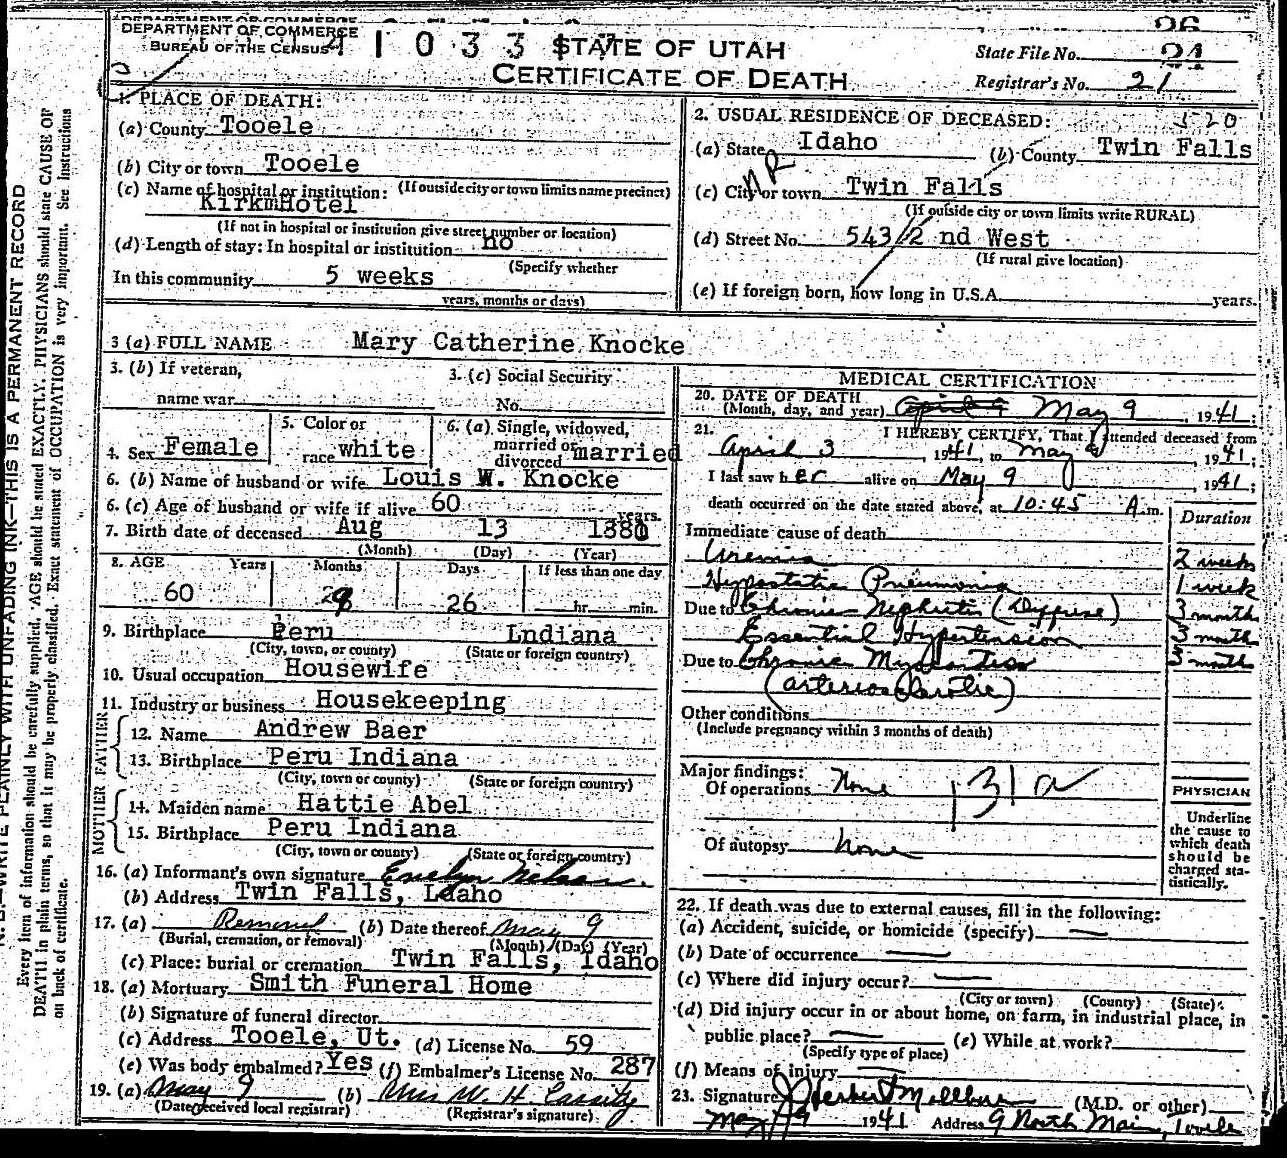 DEPARTMENT OF COMMERCE
BUREAU OF THE CENSUS
STATE OF UTAH
CERTIFICATE OF DEATH
State File No. 21
Registrar's No. 21
1. PLACE OF DEATH:
(a) County Tooele
(b) City or town Tooele
(If outside city or town limits name precinct)
(c) Name of hospital or institution:
Kirkm Hotel
(If not in hospital or institution give street number or location)
(d) Length of stay: In hospital or institution no
(Specify whether
In this community 5 weeks
years, months or days)
2. USUAL RESIDENCE OF DECEASED:
(a) State Idaho (b) County Twin Falls
NR
(c) City or town Twin Falls
(If outside city or town limits write RURAL)
(d) Street No. 543/2 nd West
(If rural give location)
(e) If foreign born, how long in U.S.A. years.
3 (a) FULL NAME Mary Catherine Knocke
3. (b) If veteran,
name war
3. (c) Social Security
No.
4. Sex Female
5. Color or
race white
6. (a) Single, widowed,
married or
divorced married
6. (b) Name of husband or wife Louis W. Knocke
6. (c) Age of husband or wife if alive 60 years.
7. Birth date of deceased Aug 13
(Month) (Day) (Year)
8. AGE Years Months Days If less than one day
60 26 hr. min.
9. Birthplace Peru Indiana
(City, town, or county) (State or foreign country)
10. Usual occupation Housewife
11. Industry or business Housekeeping
FATHER
12. Name Andrew Baer
13. Birthplace Peru Indiana
(City, town or county) (State or foreign country)
MOTHER
14. Maiden name Hattie Abel
15. Birthplace Peru Indiana
(City, town or county) (State or foreign country)
16. (a) Informant's own signature Evelyn Nelson
(b) Address Twin Falls, Idaho
17. (a) Removal (b) Date thereof May 9
(Burial, cremation, or removal) (Month) (Day) (Year)
(c) Place: burial or cremation Twin Falls, Idaho
18. (a) Mortuary Smith Funeral Home
(b) Signature of funeral director
(c) Address Tooele, Ut. (d) License No. 59
(e) Was body embalmed? Yes (f) Embalmer's License No. 287
19. (a) May 9 (b) W. H. Cassity
(Date received local registrar) (Registrar's signature)
MEDICAL CERTIFICATION
20. DATE OF DEATH
(Month, day, and year) May 9, 1941;
21. I HEREBY CERTIFY, That I attended deceased from
April 3, 1941, to May 9 1941;
I last saw her alive on May 9 1941;
death occurred on the date stated above, at 10:45 A. m.
Duration
Immediate cause of death
Uremia 2 weeks
Hypostatic Pneumonia 1 week
Due to Chronic Nephritis (Diffuse) 3 months
Essential Hypertension 3 month
Due to Chronic Myocarditis 3 month
(arteriosclerotic)
Other conditions
(Include pregnancy within 3 months of death)
Major findings:
Of operations None 131a
Of autopsy None
PHYSICIAN
Underline
the cause to
which death
should be
charged sta-
tistically.
22. If death was due to external causes, fill in the following:
(a) Accident, suicide, or homicide (specify)
(b) Date of occurrence
(c) Where did injury occur?
(City or town) (County) (State)
(d) Did injury occur in or about home, on farm, in industrial place, in
public place? (e) While at work?
(Specify type of place)
(f) Means of injury
23. Signature J Herbert Millburn (M.D. or other)
May 9 1941 Address 9 North Main, Tooele
N. B.—WRITE PLAINLY WITH UNFADING INK—THIS IS A PERMANENT RECORD
Every item of information should be carefully supplied. AGE should be stated EXACTLY. PHYSICIANS should state CAUSE OF
DEATH in plain terms, so that it may be properly classified. Exact statement of OCCUPATION is very important. See Instructions
on back of certificate.